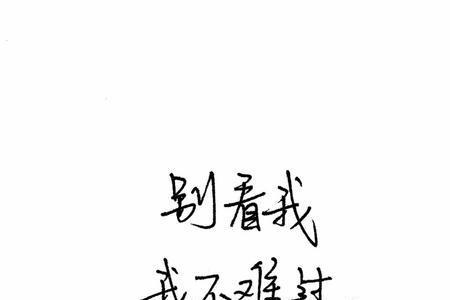 别看我
我不难过